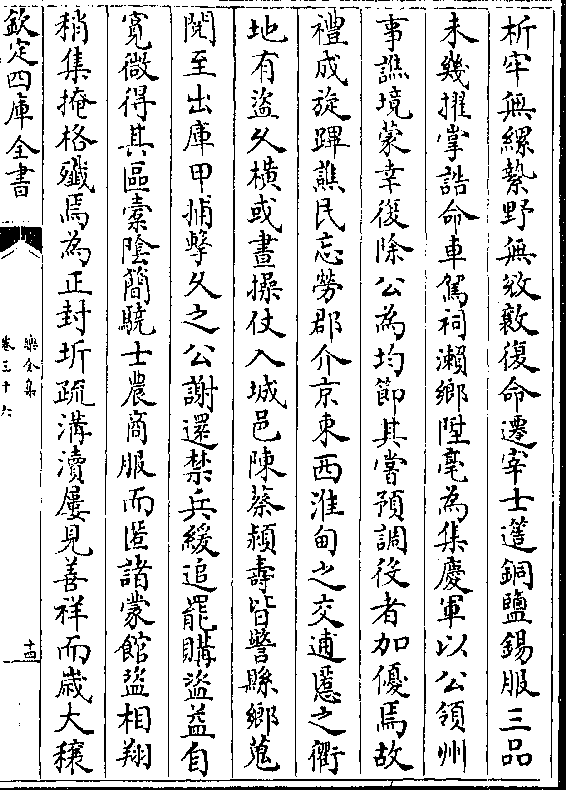 析牢無縲縶野無攷敷復命遷宰士蒞銅鹽錫服三品
未幾擢掌誥命車駕祠瀨鄉陞亳為集慶軍以公領州
事譙境蒙幸復除公為均節其嘗預調役者加優焉故
禮成旋蹕譙民忘勞郡介京東西淮甸之交逋慝之衝
地有盜久橫或晝操仗入城邑陳蔡潁壽皆警縣鄉蒐
閱至出庫甲捕擊久之公謝還禁兵緩追罷購盜益自
寛微得其區橐陰簡驍士農商服而匿諸蒙館盜相翔
稍集掩格殱焉為正封圻疏溝瀆屢見善祥而歲大穣
欽定四庫全書
樂全集
卷三十六
十四